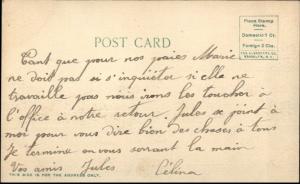 Place Stamp
Here.
Domestic 1 Ct.
Foreign 2 Cts.
BROOKLYN, N.Y.
POST CARD
Cant que pour nos paies Marie
ne doit pas si s'inquiéter si elle ne
travaille pas nous irons les toucher à
l'office à notre retour. Jules se joint à
moi pour vous dire bien des choses à tous
Je termine en vous serrant la main
Vos amis Jules Célina
THIS SIDE IS FOR THE ADDRESS ONLY.